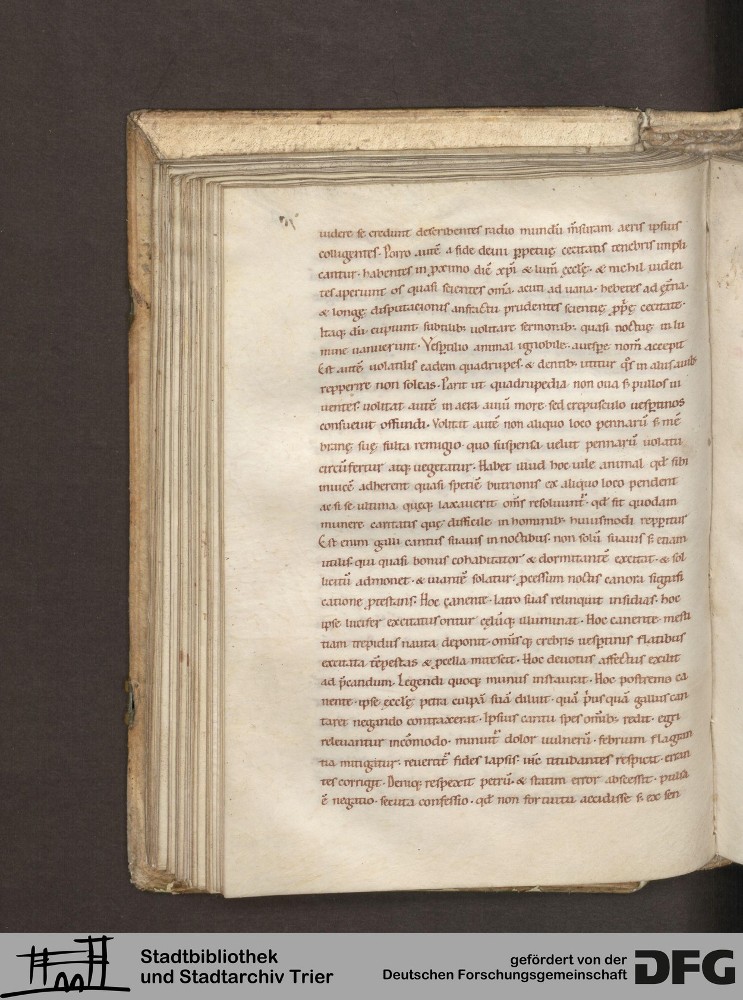 uidere se credunt describentes radio mundū m̄suram aeris ipsius
colligentes. Porro autē a fide deuii ꝑpetuę cecitatis tenebris inpli
cantur. habentes in ꝓximo diē xp̄i & lum̄ ęcclę. & nichil uiden
tes aperiunt os quasi scientes om̄a. acuti ad uana. hebetes ad ęt̄na.
& longę disputationis anfractu prudentes scientię ꝓp̄ę cecitate.
Itaq; dū cupiunt subtilib; uolitare sermonib; quasi noctuę in lu
mine uanuerunt. Vesꝑtilio animal ignobile. a uesꝑe nom̄ accepit
Est autē uolatilis eadem quadrupes. & dentib; utitur q̄s in aliis auib;
repperire non soleas. Parit ut quadrupedia non oua s̄ pullos ui
uentes. uolitat autē in aera auiū more. sed crepusculo uesꝑtinos
consueuit offundi. Volitat autē non aliquo loco pennarū s̄ mē
branę suę fulta remigio. quo suspensa uelut pennarū uolatu
circūfertur atq; uegetatur. Habet illud hoc uile animal qd̄ sibi
inuicē adherent quasi speciē butrionis ex aliquo loco pendent
ac si se ultima quęq; laxauerit om̄s resoluunt̄. qd̄ fit quodam
munere caritatis quę difficile in hominib; huiusmodi repperitur
Est enim galli cantus suauis in noctibus. non solū suauis s̄ etiam
utilis. qui quasi bonus cohabitator & dormitantē excitat. & sol
licitū admonet. & uiantē solatur. ꝓcessum noctis canora signifi
catione ꝓtestans. Hoc canente. latro suas relinquit insidias. hoc
ipse lucifer excitatus oritur cęlūq; illuminat. Hoc canente mesti
tiam trepidus nauta deponit. omīsq; crebris uesꝑtinis flatibus
excitata tēpestas & ꝓcella mitescit. Hoc deuotus affectus exilit
ad p̄candum. Legendi quoq; munus instaurat. Hoc postremo ca
nente. ipse ęcclę petra culpā suā diluit. quā p̄usquā gallus can
taret negando contraxerat. Ipsius cantu spes omīb; redit. egri
releuantur incōmodo. minuit̄ dolor uulnerū. febrium flagran
tia mitigatur. reuertit̄ fides lapsis. ihc̄ titubantes respicit. erran
tes corrigit. Deniq; respexit petrū. & statim error abscessit. pulsa
ē negatio. secuta confessio. qd̄ non fortuitu accidisse s̄ ex sen
Stadtbibliothek
und Stadtarchiv Trier
gefördert von der
Deutschen Forschungsgemeinschaft
DFG